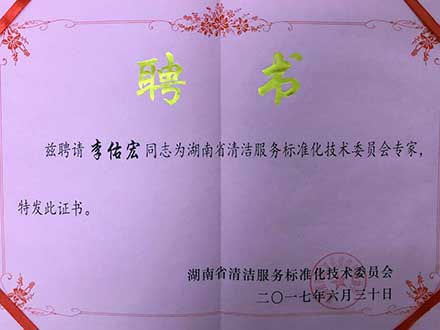 聘书
兹聘请李佑宏同志为湖南省清洁服务标准化技术委员会专家，
特发此证书。
湖南省清洁服务标准化技术委员会
二〇一七年六月三十日